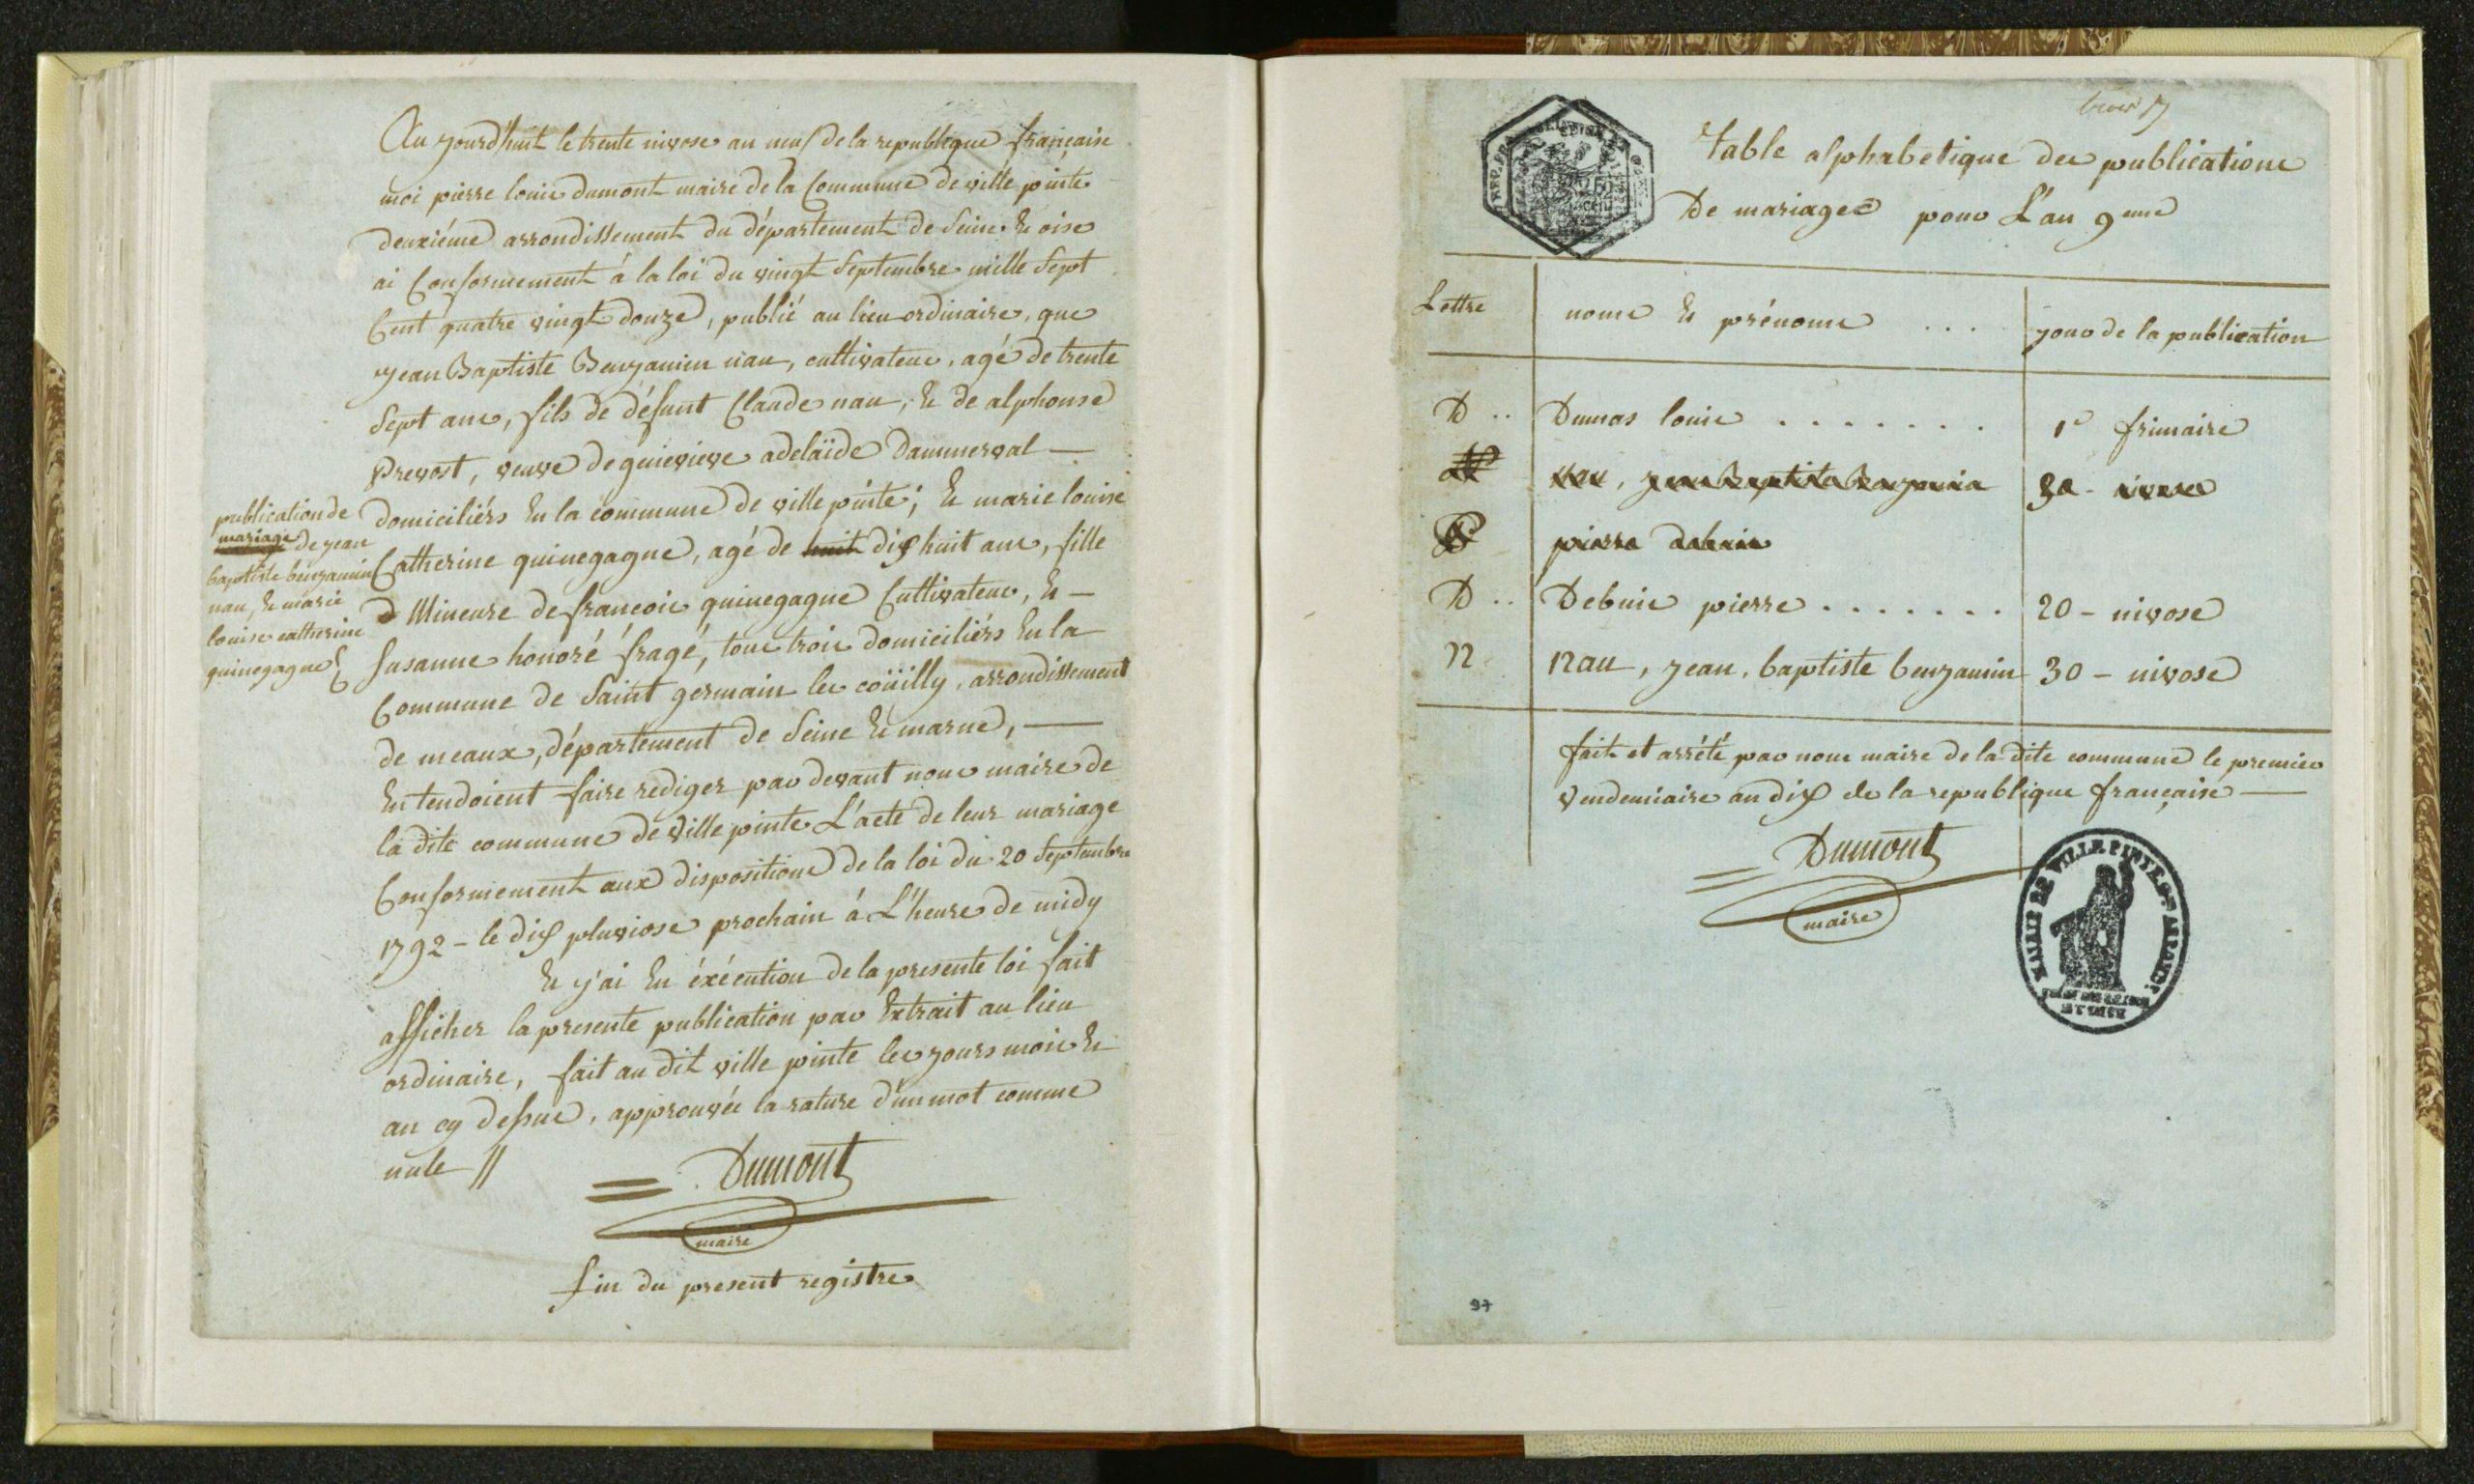 Au yourd'huit le trente nivose an neuf de la republique française
moi pierre louis dumont maire de la Commune de ville pinte
deuxiéme arrondissement du département de Seine Et oise
ai Conformement á la loi du vingt Septembre mille Sept
Cent quatre vingt douze, publié au lieu ordinaire, que
yean Baptiste Benyamin nau, cultivateur, agé de trente
Sept ans, fils de défunt Claude nau, Et de alphonse
Prevost, veuve de genevieve adelaïde Dammerval —
domiciliérs En la commune de ville pinte; Et marie louise
Catherine quinegagne, agé de huit dix huit ans, fille
Mineure de francois quinegagne Cultivateur, Et —
Susanne honoré fragé, tous trois domiciliérs En la
Commune de Saint germain les coüilly, arrondissement
de meaux, département de Seine Et marne, —
Entendoient faire rediger par devant nous maire de
la dite commune de Ville pinte L'acte de leur mariage
Conformement aux dispositions de la loi du 20 Septembre
1792 - le dix pluviose prochain á L'heure de midy
Et y'ai En éxécution de la presente loi fait
afficher la presente publication par Extrait au lieu
ordinaire, fait au dit ville pinte les yours mois Et
an cy dessus, approuvée la rature d'un mot comme
nule //
Dumont
maire
fin du present registre
publication de
mariage de yean
baptiste benyamin
nau, Et marie
louise catherine
quinegagne
Table alphabetique des publications
De mariages pour L'an 9eme
Lettre noms Et prénoms . . . your de la publication
D .. Dumas louis . . . . . . . 1er frimaire
N nau, yean baptiste benyamin 30 - nivose
P pierre debuis
D .. Debuis pierre . . . . . . . 20 - nivose
N nau, yean, baptiste benyamin 30 - nivose
fait et arrété par nous maire de la dite commune le premier
Vendemiaire an dix de la republique française —
Dumont
maire
MAIRIE DE VILLE PINTE
97